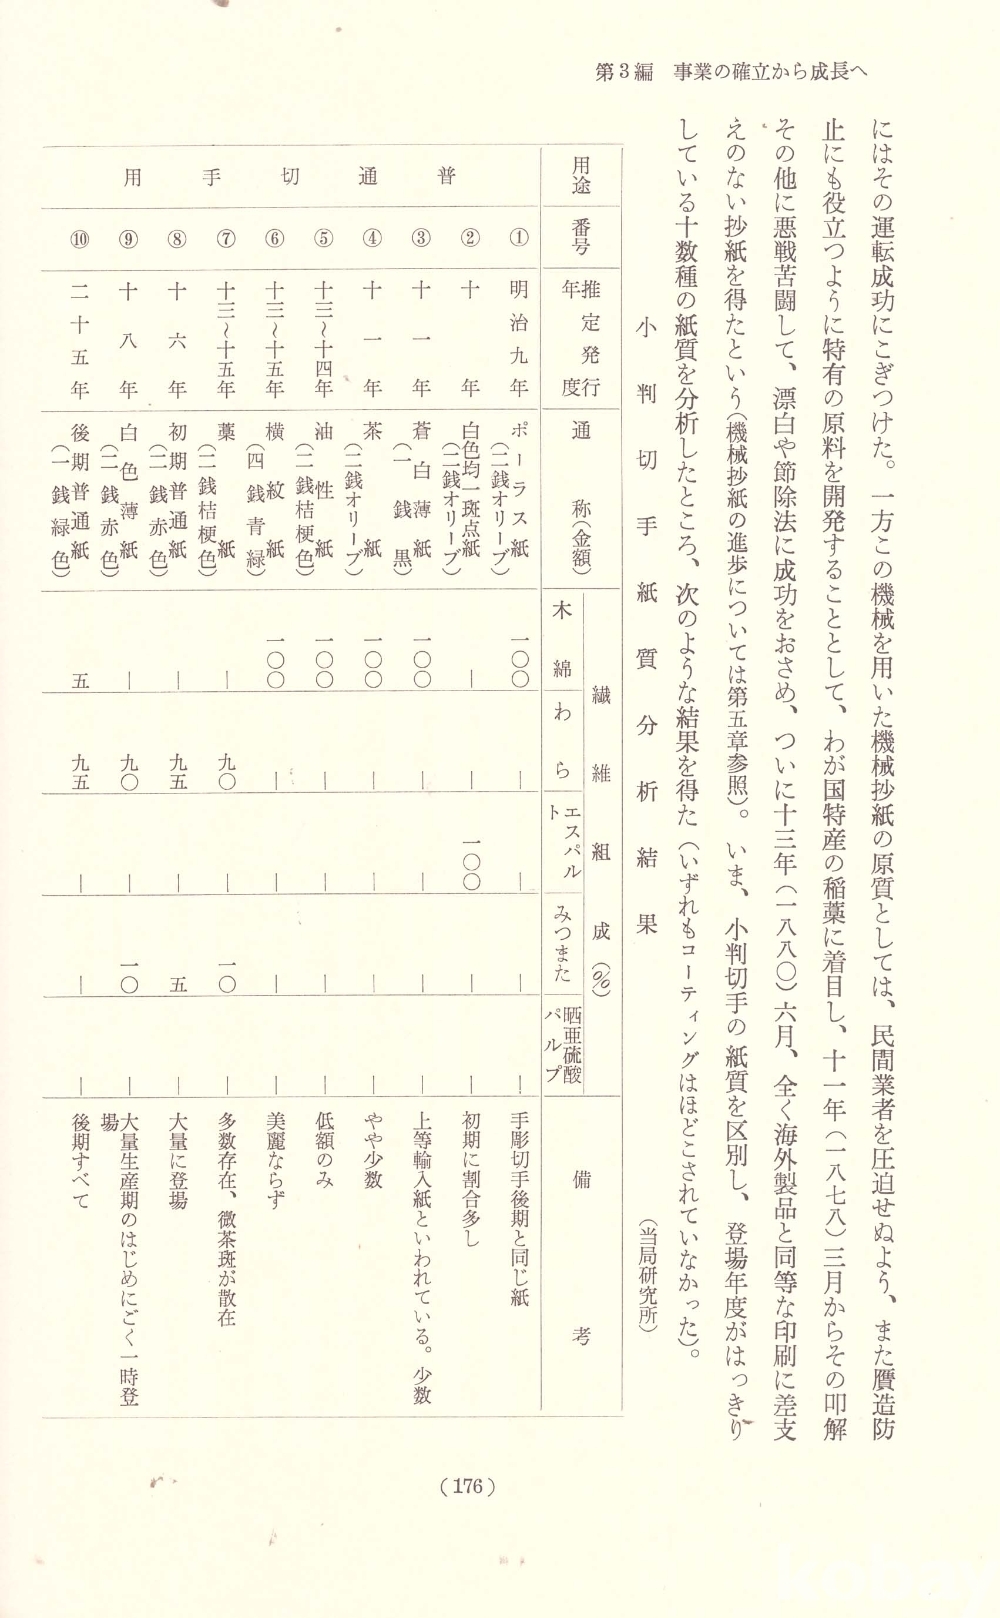 第3編　事業の確立から成長へ
にはその運転成功にこぎつけた。一方この機械を用いた機械抄紙の原質としては、民間業者を圧迫せぬよう、また贋造防
止にも役立つように特有の原料を開発することとして、わが国特産の稲藁に着目し、十一年(一八七八)三月からその叩解
その他に悪戦苦闘して、漂白や節除法に成功をおさめ、ついに十三年(一八八〇)六月、全く海外製品と同等な印刷に差支
えのない抄紙を得たという(機械抄紙の進歩については第五章参照)。いま、小判切手の紙質を区別し、登場年度がはっきり
している十数種の紙質を分析したところ、次のような結果を得た(いずれもコーティングはほどこされていなかった)。
小判切手紙質分析結果　(当局研究所)
用途　番号　推定発行年度　通称(金額)　繊維組成(%)　木綿　わら　エスパルト　みつまた　晒亜硫酸パルプ　備考
普通切手用
①　明治九年　ポーラス紙(二銭オリーブ)　一〇〇　—　—　—　—　手彫切手後期と同じ紙
②　十年　白色均一斑点紙(二銭オリーブ)　—　—　一〇〇　—　—　初期に割合多し
③　十一年　蒼白薄紙(一銭黒)　一〇〇　—　—　—　—　上等輸入紙といわれている。少数
④　十一年　茶紙(二銭オリーブ)　一〇〇　—　—　—　—　やや少数
⑤　十三〜十四年　油性紙(二銭桔梗色)　一〇〇　—　—　—　—　低額のみ
⑥　十三〜十五年　横紋紙(四銭青緑)　一〇〇　—　—　—　—　美麗ならず
⑦　十三〜十五年　藁紙(二銭桔梗色)　—　九〇　—　一〇　—　多数存在、微茶斑が散在
⑧　十六年　初期普通紙(二銭赤色)　—　九五　—　五　—　大量に登場
⑨　十八年　白色薄紙(二銭赤色)　—　九〇　—　一〇　—　大量生産期のはじめにごく一時登場
⑩　二十五年　後期普通紙(一銭緑色)　五　九五　—　—　—　後期すべて
(176)
kobay